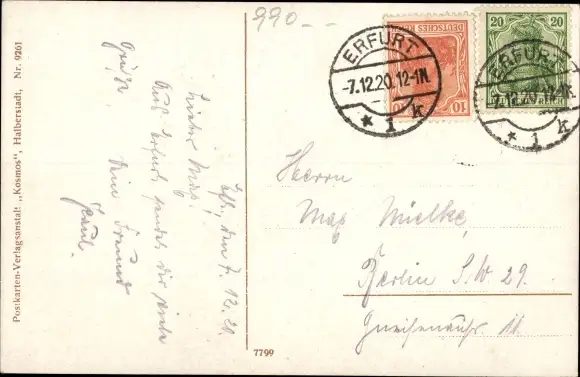 990.--
Postkarten-Verlagsanstalt „Kosmos", Halberstadt, Nr. 9261
Eft., den 7. 12. 20.
Lieber Max!
Aus Erfurt sendet dir viele
Grüße dein Freund
Paul.
7799
DEUTSCHES REICH
10
20 20
DEUTSCHES REICH
ERFURT
-7.12.20.12-1N.
* i k
ERFURT
-7.12.20.12-1N.
* i k
Herrn
Max Mielke,
Berlin S.W 29.
Gneisenaustr.